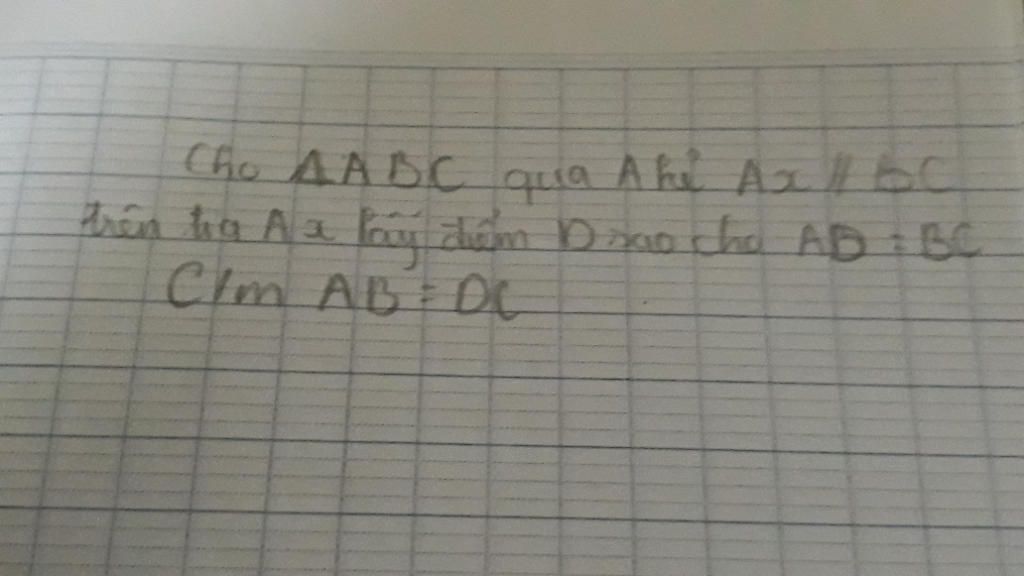 Cho ΔABC qua A kẻ Ax // BC
trên tia Ax lấy điểm D sao cho AD = BC
C/m AB = DC